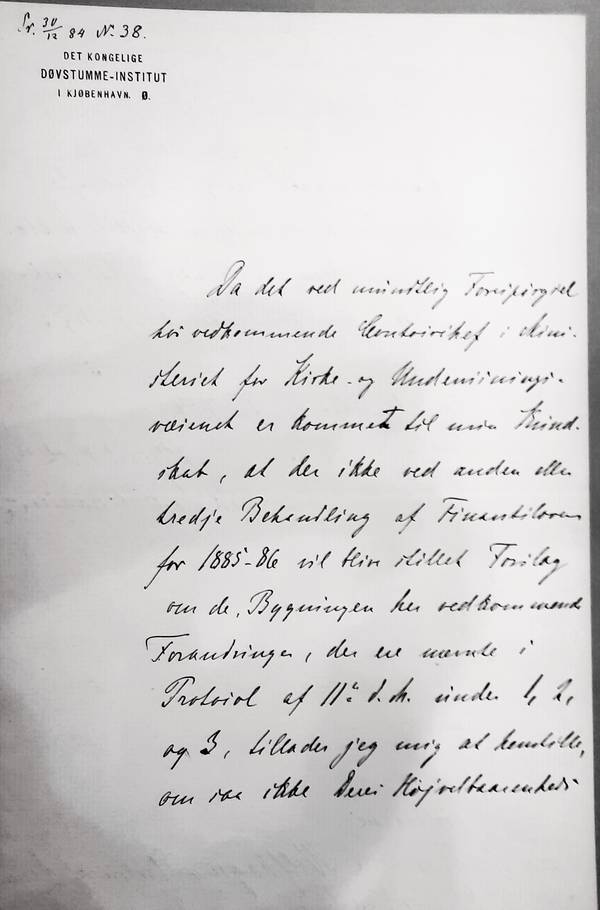 Pr. 30/12 84 N. 38.
DET KONGELIGE
DØVSTUMME-INSTITUT
I KJØBENHAVN. Ø.
Da det ved mundtlig Forespørgsel
hos vedkommende Contoirchef i Mini-
steriet for Kirke- og Undervisnings-
væsenet er kommet til min Kund-
skab, at der ikke ved anden eller
tredje Behandling af Finantsloven
for 1885-86 vil blive stillet Forslag
om de, Bygningen her vedkommende
Forandringer, der ere nævnte i
Protocol af 11te d. M. under 1, 2,
og 3, tillader jeg mig at henstille,
om saa ikke Deres Højvelbaarenheds